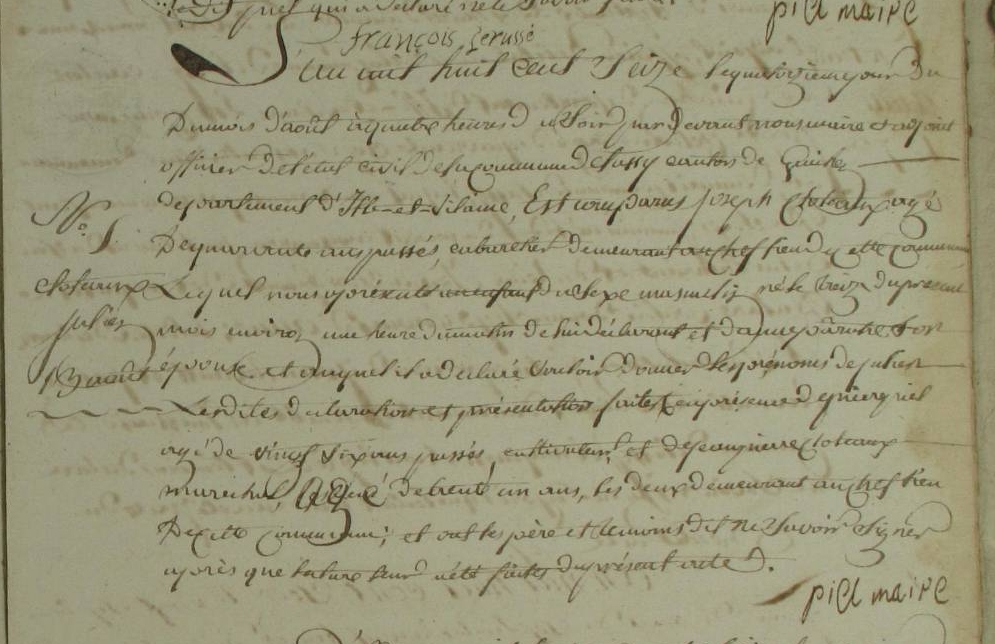 piel maire
François Jerussé
L'an mil huit cent Seize le quatorzieme jour du
Du mois d'août à quatre heures du Soir par devant nous maire et adjoint
officier de l'état civil de la commune de canton de
departement d'Ille-et-Vilaine, Est comparus joseph Clotaux agé
De quarante ans passés, cabaretier demeurant au chef lieu de cette commune
Lequel nous a présenté un enfant du Sexe masculin né le treize du présent
mois environ une heure du matin de lui déclarant et d'anne Son
épouse et auquel il a déclaré vouloir donner les prénoms de julien
Les dites déclaration et présentation faites en présence de piel
agé de vingt Six ans passés, cultivateur, et de jean pierre Cloteaux
marechal, agé de trente un ans, les deux demeurant au chef lieu
De cette commune; et ont les père et temoins dit ne Savoir Signer
après que lecture leur a été faites du présent acte.
piel maire
N°
Clotaux
julien
13 août